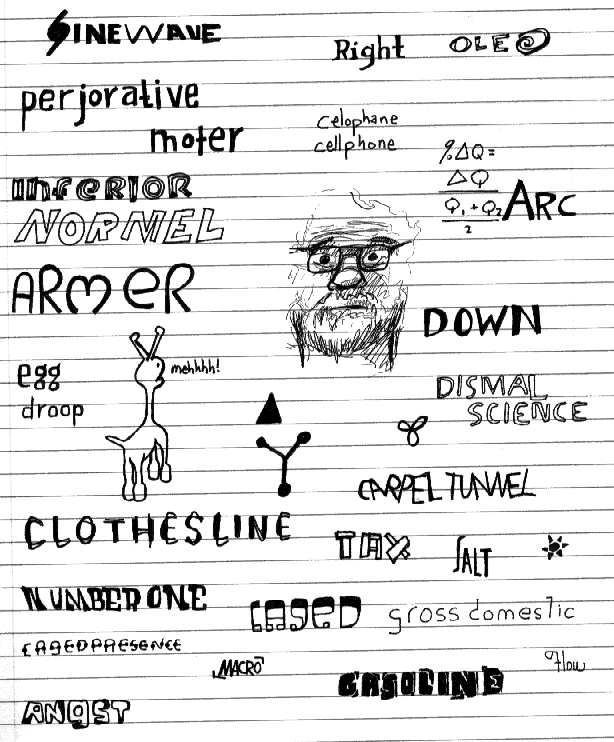 SINEWAVE
Right
OLEO
perjorative
moter
celophane
cellphone
%ΔQ=
ΔQ
Q₁ + Q₂
2
ARC
INFERIOR
NORMEL
ARMER
DOWN
mehhhh!
egg
droop
DISMAL
SCIENCE
CARPEL TUNNEL
CLOTHESLINE
TAX
SALT
NUMBER ONE
CAGED
gross domestic
CAGED PRESENCE
MACRO
Flow
GASOLINE
ANGST